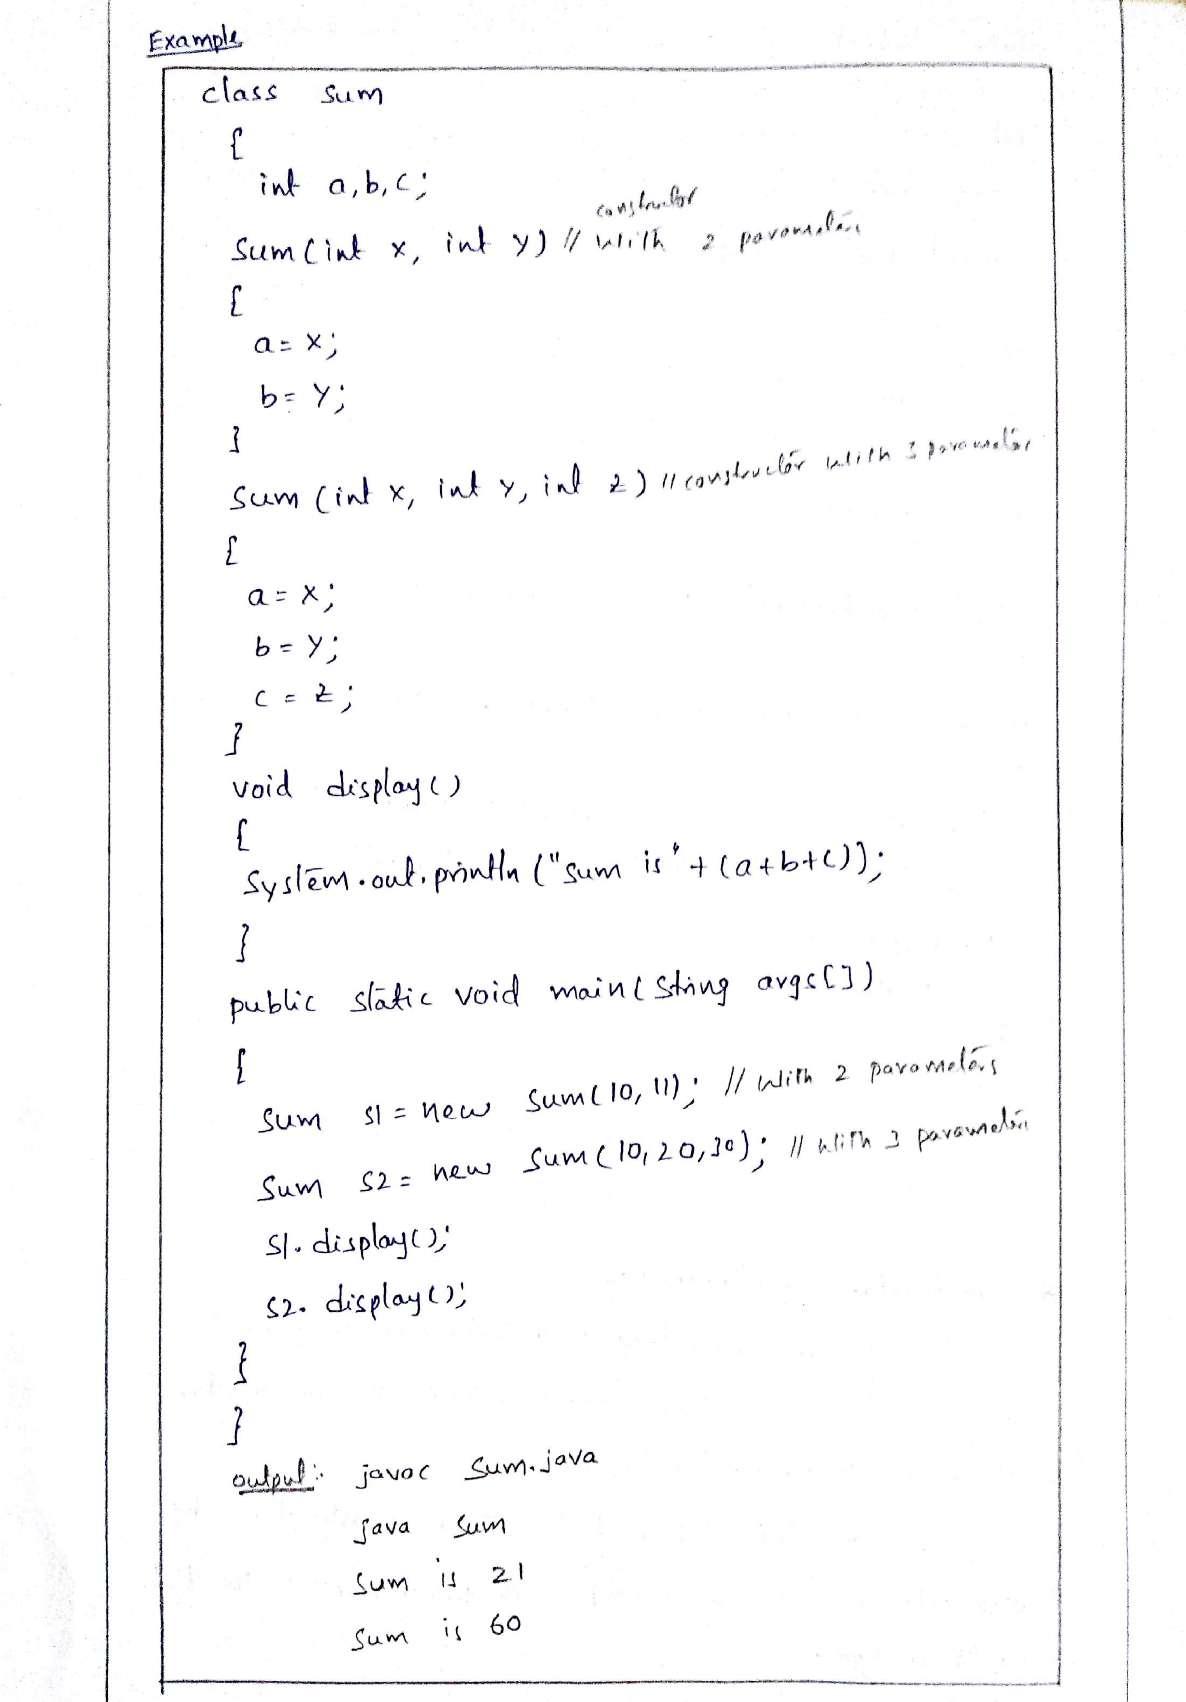 Example
class sum
{
int a,b,c;
constructor
Sum(int x, int y) // with 2 parameters
{
a = x;
b = y;
}
Sum (int x, int y, int z) // constructor with 3 parameters
{
a = x;
b = y;
c = z;
}
void display()
{
System.out.println ("sum is" + (a+b+c));
}
public static void main(String args[])
{
Sum s1 = new Sum(10, 11); // with 2 parameters
Sum s2 = new Sum(10,20,30); // with 3 parameters
s1. display();
s2. display();
}
}
output: javac Sum.java
java Sum
Sum is 21
Sum is 60